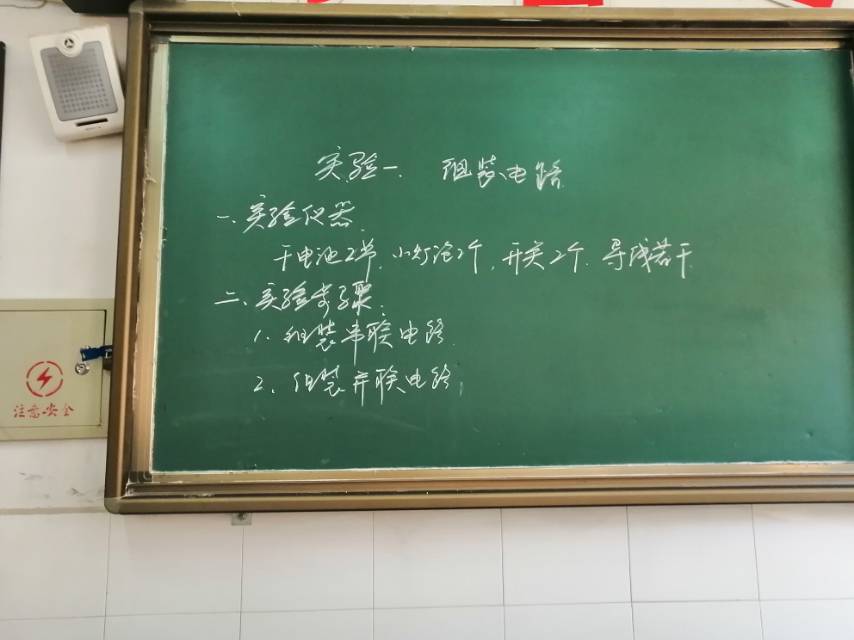 实验一. 组装电路
一、实验仪器
干电池2节、小灯泡2个,开关2个、导线若干
二、实验步骤:
1、组装串联电路
2、组装并联电路
注意安全